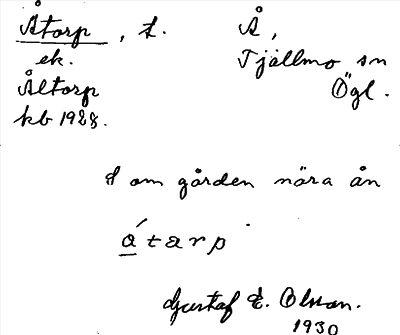 Åtorp, t. Å,
ek. Tjällmo sn
Åltorp Ögl.
kb 1928.
t om gården nära ån
átarp
Gustaf E. Olsson.
1930